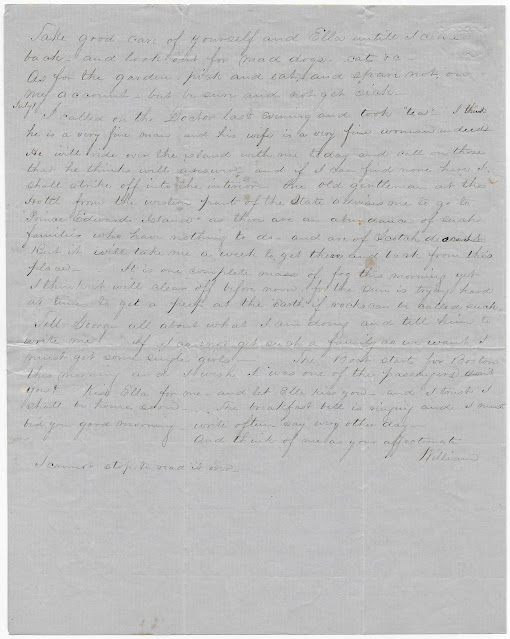 Take good care of yourself and Ella untill I come
back - and look out for mad dogs - cats &c -
As for the garden, pick and eat, and spare not on
my account - but be sure and not get sick -
July 1 I called on the Doctor last evening and took "tea" I think
he is a very fine man and his wife is a very fine woman indeed
He will ride over the island with me to day and call on those
that he thinks will answer, and if I can find none here I
shall strike off into the interior. One old gentleman at the
Hotel from the western part of the State advises me to go to
Prince Edward Island as there are an abundance of such
families who have nothing to do - and are of Scotch descent
But it will take me a week to get there and back from this
place - It is one complete mass of fog this morning yet
I think it will clear off before noon for the sun is trying hard
at times to get a peep at the Earth if rocks can be called such
Tell George all about what I am doing and tell him to
write me - If I cannot get such a family as we want I
must get some single girls - The Boat starts for Boston
this morning and I wish I was one of the passengers don't
you? Kiss Ella for me - and let Ella kiss you - and I trust I
shall be home soon - The breakfast bell is ringing and I must
bid you good morning - write often say every other day -
And think of me as your affectionate
William
I cannot stop to read it over -